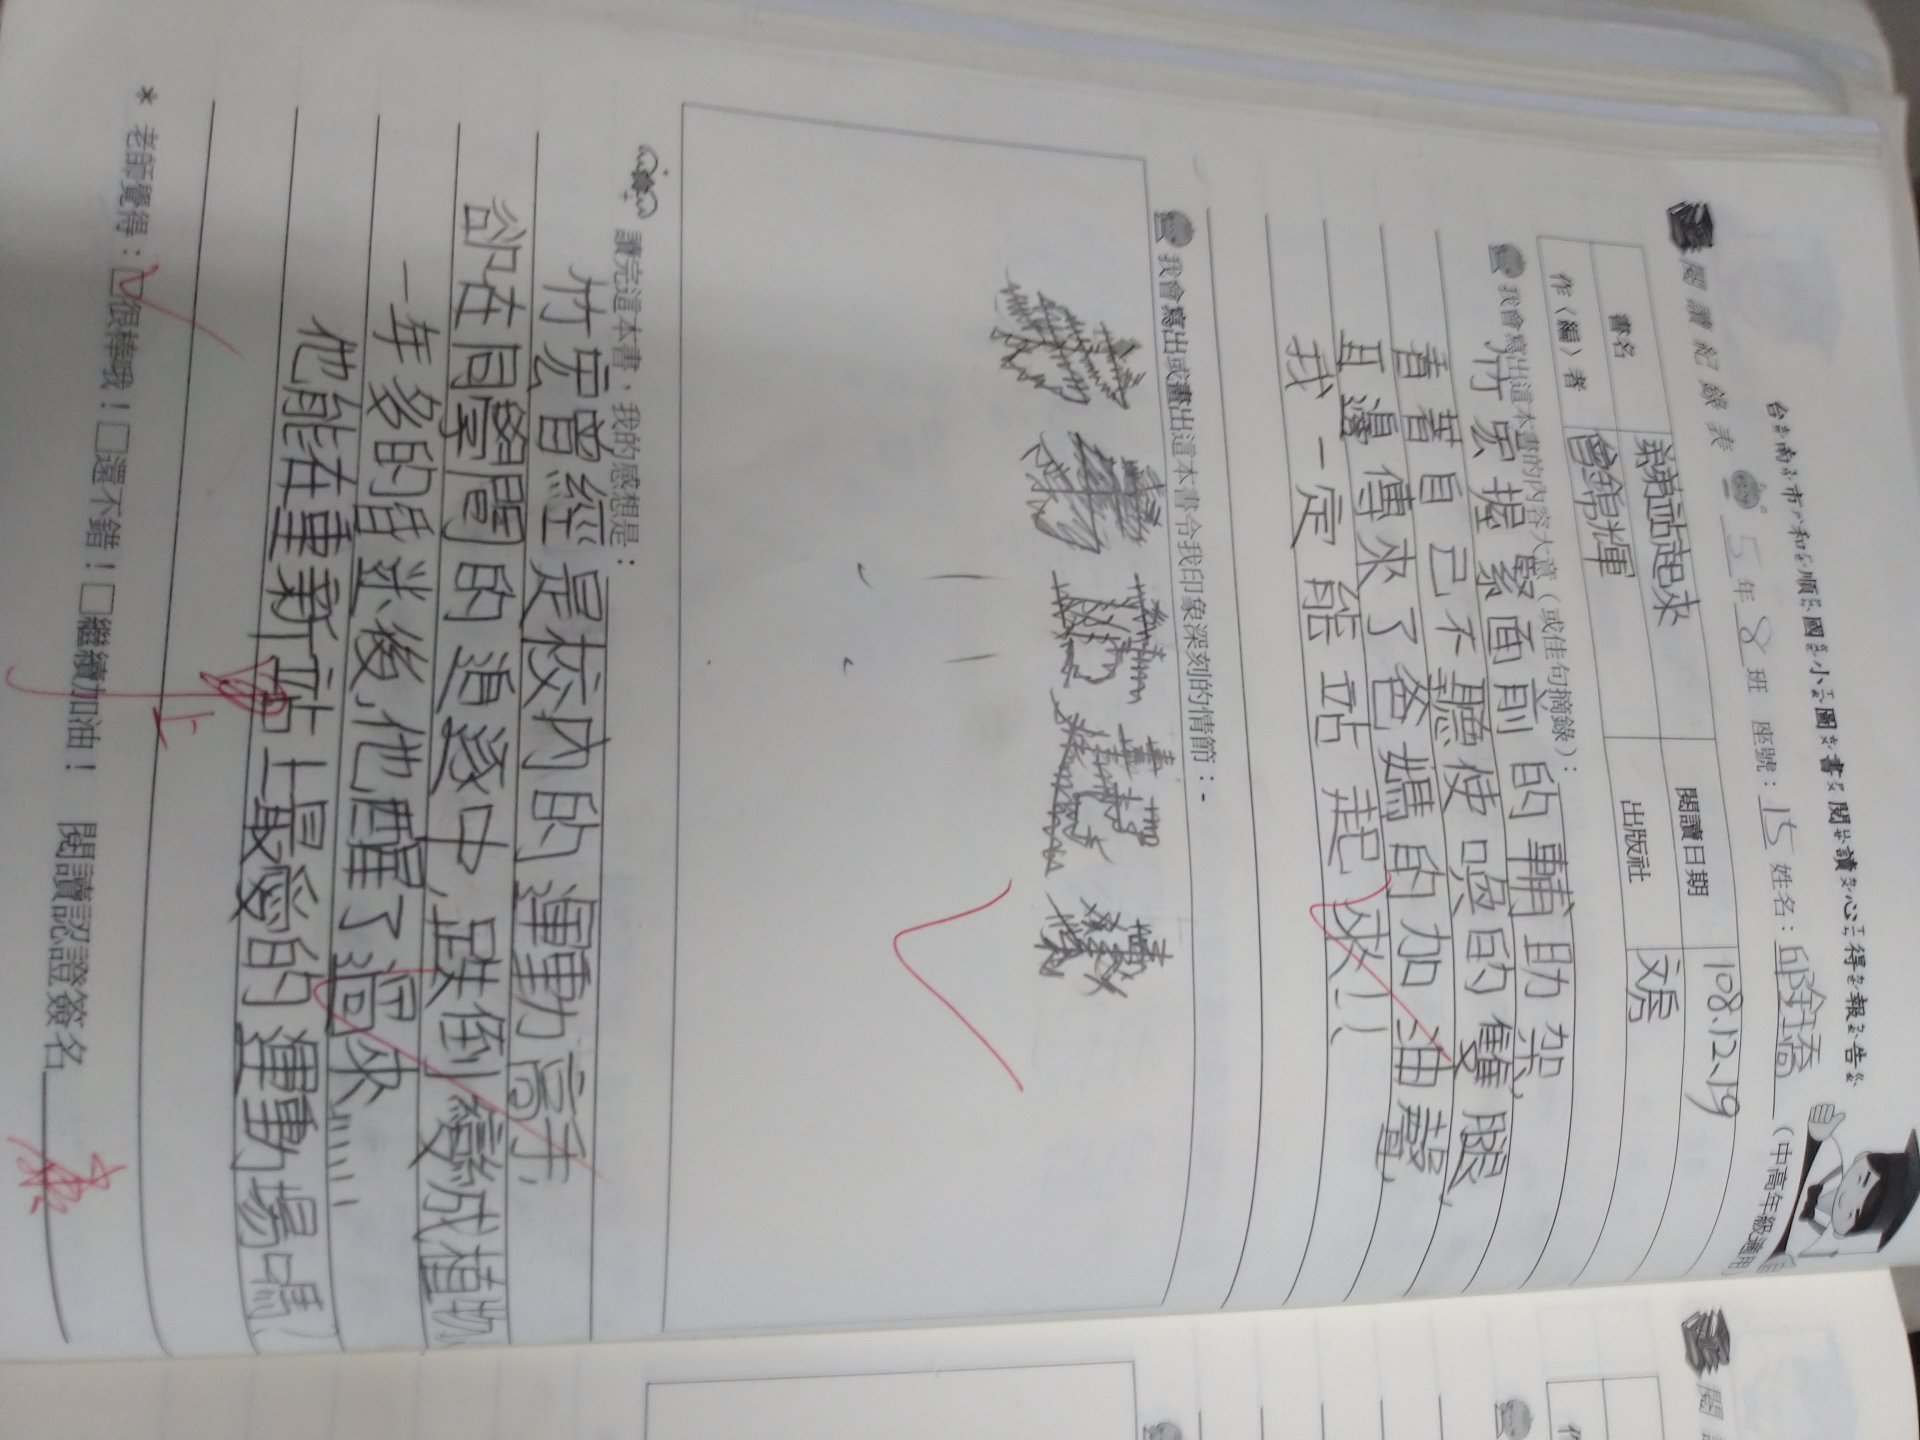 台南市和順國小圖書閱讀心得報告
閱讀紀錄表 5年8班 座號：15 姓名：邱 （中高年級適用）
書名 弟弟站起來 閱讀日期 108.12.19
作（編）者 曾 輝 出版社 文房
我會寫出這本書的內容大意（或佳句摘錄）：
竹 握緊面前的輔助架，
看著自己不聽使喚的雙腿，
耳邊傳來了爸媽的加油聲，
我一定能站起來！！
我會寫出或畫出這本書令我印象深刻的情節：-
讀完這本書，我的感想是：
竹 曾經是校內的運動高手，
卻在同學間的追逐中，跌倒變成植物
一年多的 後，他醒了過來
他能在重新站上最愛的運動場嗎
上
* 老師覺得：☑很棒哦！□還不錯！□繼續加油！ 閱讀認證簽名
閱
作